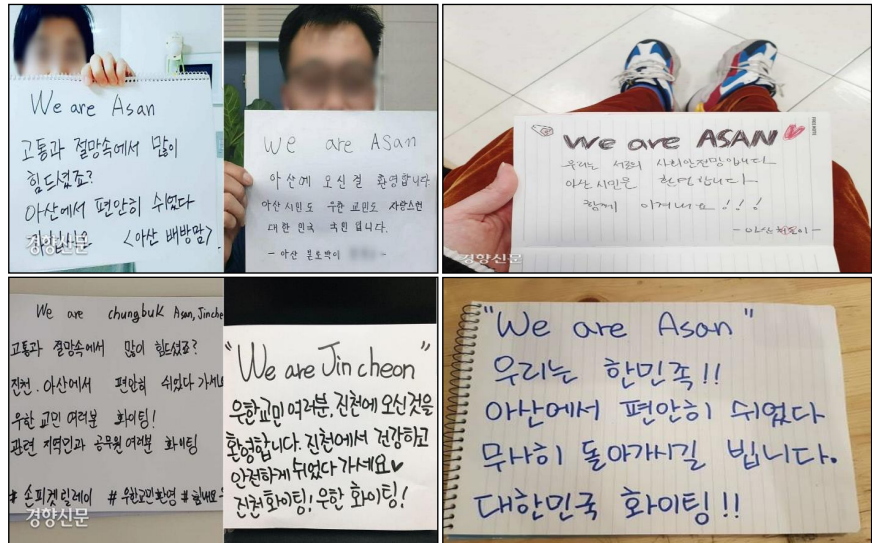 We are Asan
고통과 절망속에서 많이
힘드셨죠?
아산에서 편안히 쉬었다
<아산 배방맘>.
경향신문
We are Asan
아산에 오신걸 환영합니다
아산시민도 우한 교민도 사랑스런
대한민국 국민 입니다.
- 아산 본토박이
We are ASAN
우리는 서로의 사회안전망입니다
아산 시민은 환영합니다
함께 이겨내요!!!
경향신문
We are chungbuk Asan, Jinche
고통과 절망속에서 많이 힘드셨죠?
진천. 아산에서 편안히 쉬었다 가세요
우한 교민 여러분 화이팅!
관련 지역민과 공무원 여러분 화이팅
# 손피켓릴레이 # 우한교민환영 # 힘내요
경향신문
"We are Jincheon"
우한교민 여러분, 진천에 오신것을
환영합니다. 진천에서 건강하고
안전하게 쉬었다 가세요♥
진천 화이팅! 우한 화이팅!
"We are Asan"
우리는 한민족!!
아산에서 편안히 쉬었다
무사히 돌아가시길 빕니다.
대한민국 화이팅!!